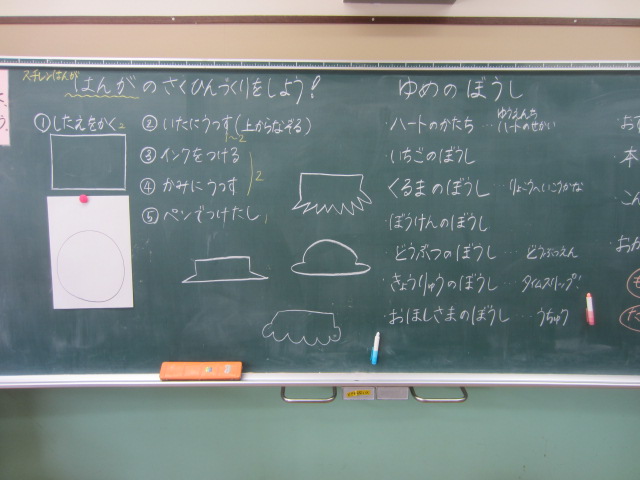 スチレンはんが
はんがのさくひんづくりをしよう!
①したえをかく 2
②いたにうつす(上からなぞる)
1~2
③インクをつける
④かみにうつす
2
⑤ペンでつけたし 1
ゆめのぼうし
・ハートのかたち…ゆうえんち
ハートのせかい
・いちごのぼうし
・くるまのぼうし…りょこうへいこうかな
・ぼうけんのぼうし
・どうぶつのぼうし…どうぶつえん
・きょうりゅうのぼうし…タイムスリップ!
・おほしさまのぼうし…うちゅう
・本